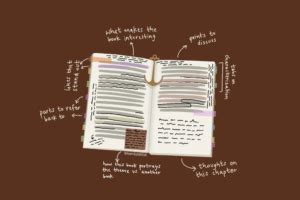 what makes the
book interesting
points to
discuss
lines that
stand out
characterisation
parts to refer
back to
how this book portrays
the theme vs another
book
thoughts on
this chapter